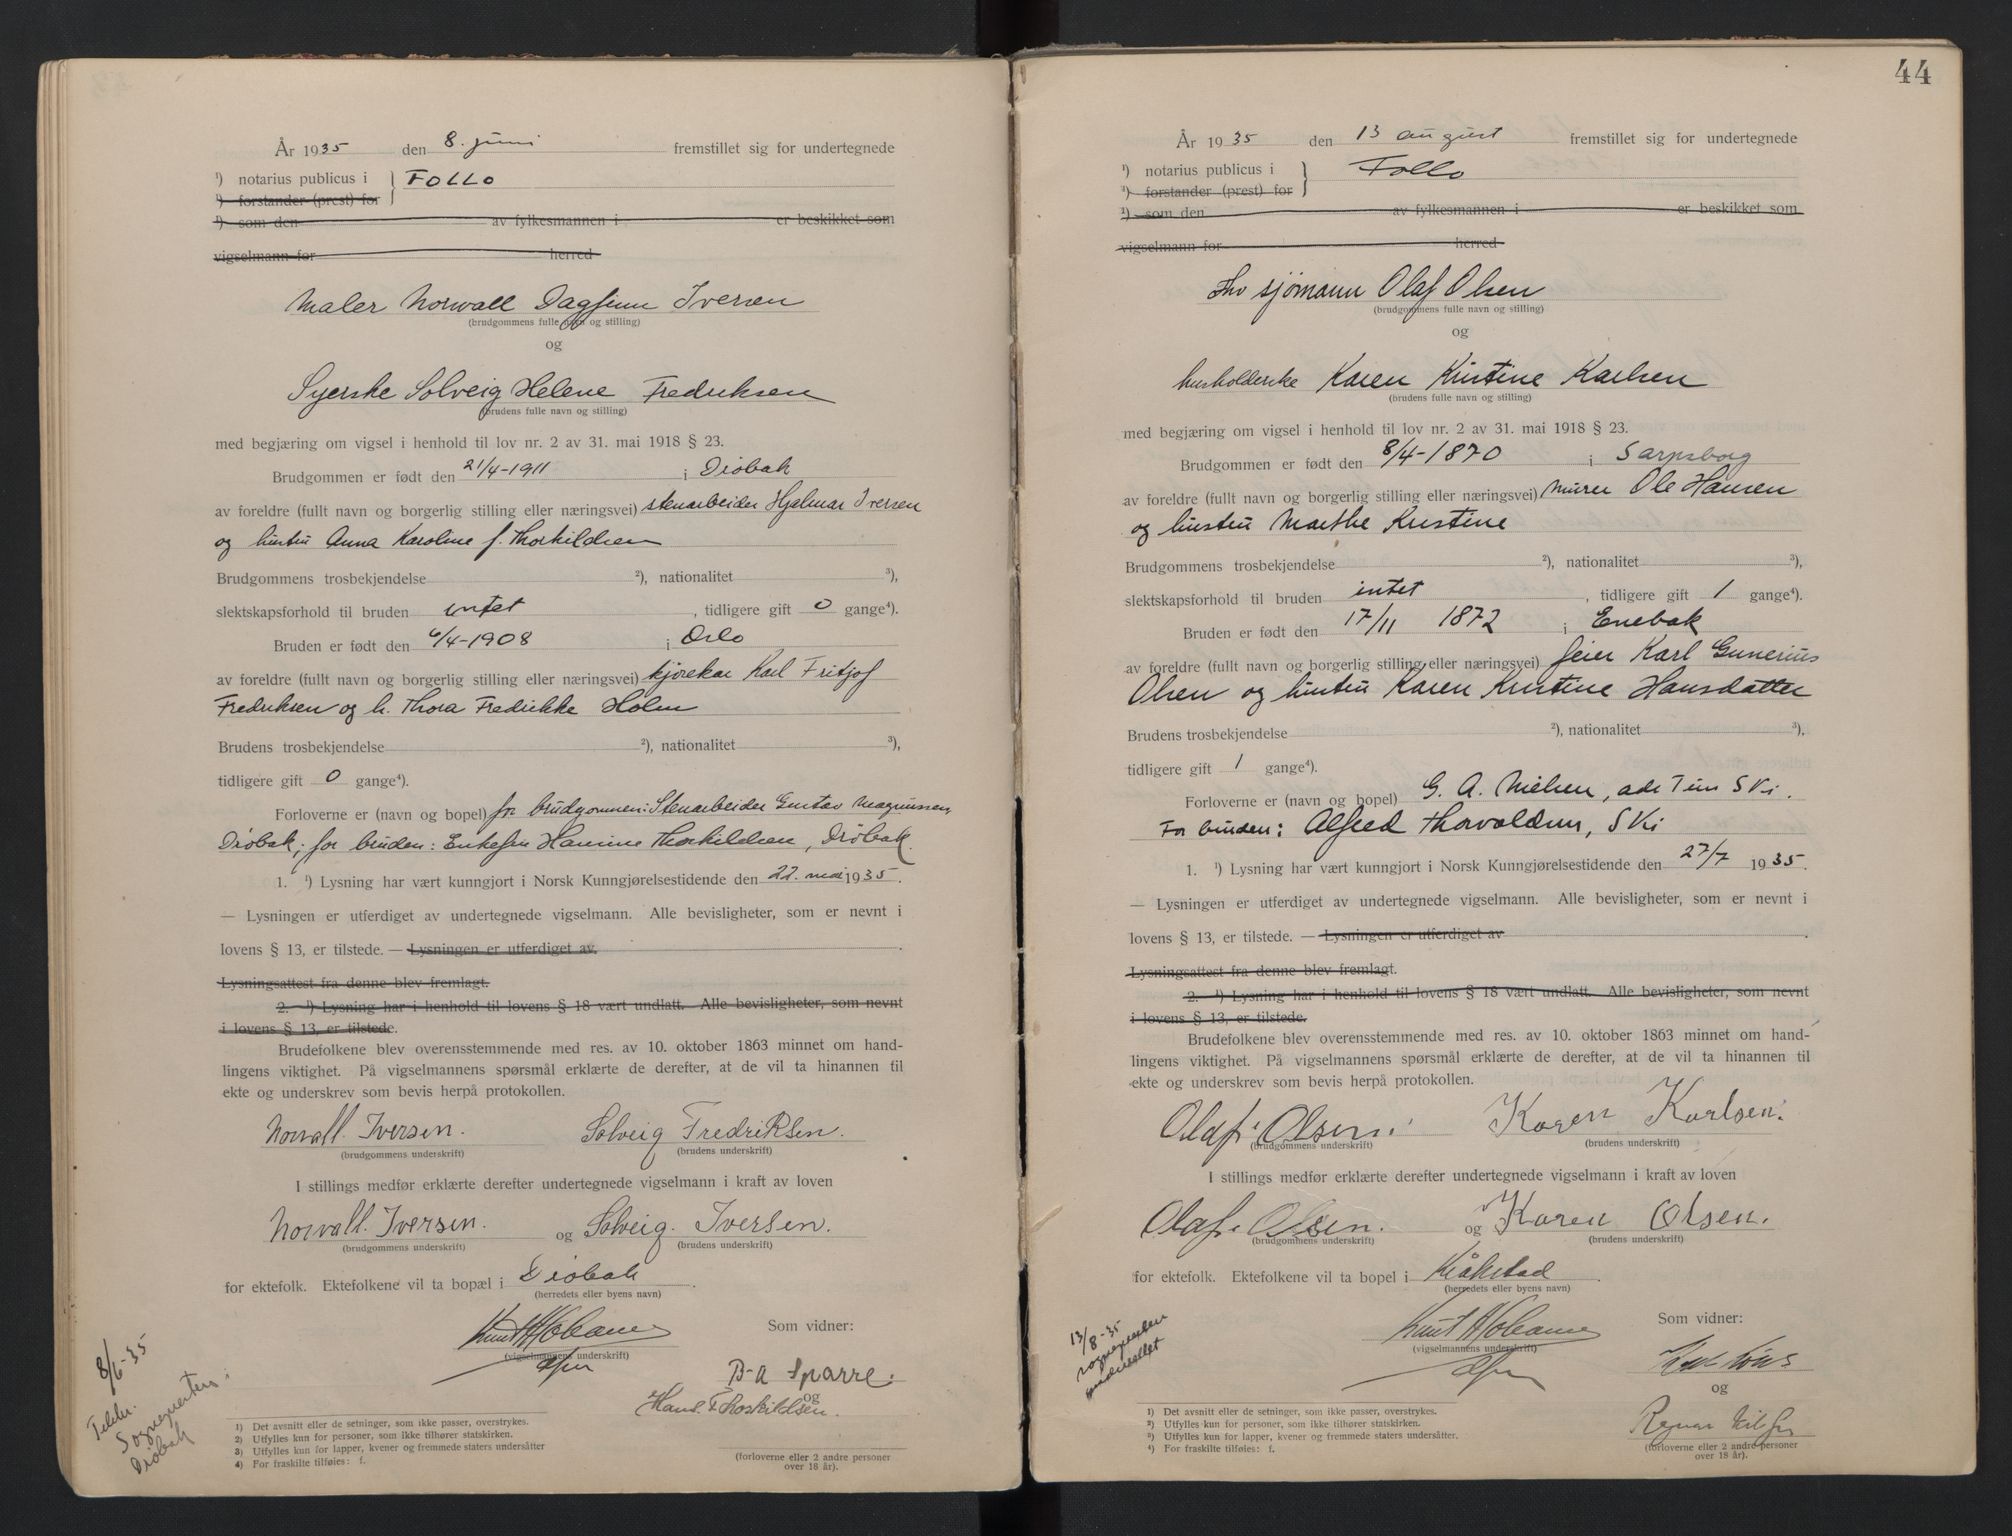 År 1935 den 8. juni fremstillet sig for undertegnede
¹) notarius publicus i } Follo
¹) forstander (prest) for
¹) som den av fylkesmannen i er beskikket som
vigselmann for herred
Maler Norvall Dagfinn Iversen
(brudgommens fulle navn og stilling)
og
Syerske Solveig Helene Fredriksen
(brudens fulle navn og stilling)
med begjæring om vigsel i henhold til lov nr. 2 av 31. mai 1918 § 23.
Brudgommen er født den 21/4-1911 i Drøbak
av foreldre (fullt navn og borgerlig stilling eller næringsvei) stenarbeider Hjalmar Iversen
og hustru Anna Karoline f. Thorkildsen
Brudgommens trosbekjendelse ²), nationalitet ³),
slektskapsforhold til bruden intet, tidligere gift 0 gange⁴).
Bruden er født den 6/4-1908 i Oslo
av foreldre (fullt navn og borgerlig stilling eller næringsvei) kjørekar Karl Fritjof
Fredriksen og h. Thora Fredrikke Holm
Brudens trosbekjendelse ²), nationalitet ³),
tidligere gift 0 gange⁴).
Forloverne er (navn og bopel) for brudgommen: Stenarbeider Gustav Magnussen,
Drøbak; for bruden: Enkefru Hanine Thorkildsen, Drøbak.
1. ¹) Lysning har vært kunngjort i Norsk Kunngjørelsestidende den 22. mai 1935.
— Lysningen er utferdiget av undertegnede vigselmann. Alle bevisligheter, som er nevnt i
lovens § 13, er tilstede. — Lysningen er utferdiget av.
Lysningsattest fra denne blev fremlagt.
2. ¹) Lysning har i henhold til lovens § 18 vært undlatt. Alle bevisligheter, som nevnt
i lovens § 13, er tilstede.
Brudefolkene blev overensstemmende med res. av 10. oktober 1863 minnet om hand-
lingens viktighet. På vigselmannens spørsmål erklærte de derefter, at de vil ta hinannen til
ekte og underskrev som bevis herpå protokollen.
Norvall. Iversen. Solveig Fredriksen.
(brudgommens underskrift) (brudens underskrift)
I stillings medfør erklærte derefter undertegnede vigselmann i kraft av loven
Norvall. Iversen. og Solveig. Iversen.
(brudgommens underskrift) (brudens underskrift)
for ektefolk. Ektefolkene vil ta bopæl i Drøbak.
(herredets eller byens navn)
Som vidner:
(vigselmannens underskrift)
B-A Sparre.
og
Hans. Thorkildsen.
(forloverne eller 2 andre personer
over 18 år).
8/6-35
Sogneprten
Drøbak
1) Det avsnitt eller de setninger, som ikke passer, overstrykes.
2) Utfylles kun for personer, som ikke tilhører statskirken.
3) Utfylles kun for lapper, kvener og fremmede staters undersåtter
4) For fraskilte tilføies: f.
44
År 1935 den 13 august fremstillet sig for undertegnede
¹) notarius publicus i } Follo
¹) forstander (prest) for
¹) som den av fylkesmannen i er beskikket som
vigselmann for herred
fhv sjømann Olaf Olsen
(brudgommens fulle navn og stilling)
og
husholderske Karen Kristine Karlsen
(brudens fulle navn og stilling)
med begjæring om vigsel i henhold til lov nr. 2 av 31. mai 1918 § 23.
Brudgommen er født den 8/4-1870 i Sarpsborg
av foreldre (fullt navn og borgerlig stilling eller næringsvei) murer Ole Hansen
og hustru Marthe Kristine
Brudgommens trosbekjendelse ²), nationalitet ³),
slektskapsforhold til bruden intet, tidligere gift 1 gange⁴).
Bruden er født den 17/11 1872 i Enebak
av foreldre (fullt navn og borgerlig stilling eller næringsvei) feier Karl Gunerius
Olsen og hustru Karen Kristine Hansdatter
Brudens trosbekjendelse ²), nationalitet ³),
tidligere gift 1 gange⁴).
Forloverne er (navn og bopel) G. A. Nielsen, Ski.
For bruden: Alfred Thorvaldsen, Ski
1. ¹) Lysning har vært kunngjort i Norsk Kunngjørelsestidende den 27/7 1935.
— Lysningen er utferdiget av undertegnede vigselmann. Alle bevisligheter, som er nevnt i
lovens § 13, er tilstede. — Lysningen er utferdiget av.
Lysningsattest fra denne blev fremlagt.
2. ¹) Lysning har i henhold til lovens § 18 vært undlatt. Alle bevisligheter, som nevnt
i lovens § 13, er tilstede.
Brudefolkene blev overensstemmende med res. av 10. oktober 1863 minnet om hand-
lingens viktighet. På vigselmannens spørsmål erklærte de derefter, at de vil ta hinannen til
ekte og underskrev som bevis herpå protokollen.
Olaf. Olsen. Karen Karlsen.
(brudgommens underskrift) (brudens underskrift)
I stillings medfør erklærte derefter undertegnede vigselmann i kraft av loven
Olaf. Olsen. og Karen Olsen.
(brudgommens underskrift) (brudens underskrift)
for ektefolk. Ektefolkene vil ta bopel i Kråkstad.
(herredets eller byens navn)
Som vidner:
(vigselmannens underskrift)
og
Ragnar
(forloverne eller 2 andre personer
over 18 år).
13/8-35
sognepresten
underrettet
¹) Det avsnitt eller de setninger, som ikke passer, overstrykes.
²) Utfylles kun for personer, som ikke tilhører statskirken.
³) Utfylles kun for lapper, kvener og fremmede staters undersåtter.
⁴) For fraskilte tilføies: f.